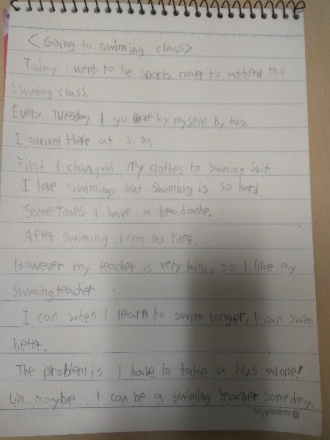 <Going to swiming class>
Today i went to the sports to attend the
swiming class.
Every Tuesday I go by myself by bus.
I arrived there at
First I changed my clothes to swiming suit
I love swimings but swiming is so hard.
Sometimes I have a headache.
After swiming I'm so tired.
However my teacher is very kind, so I like my
swiming teacher.
I can when I learn to swim longer, I can swim
better.
The problem is I have to take a bus alone!
Um... maybe I can be a swiming teacher someday.